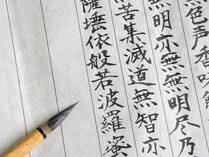 色声香味
無明亦無無明尽乃
苦集滅道無智亦
薩埵依般若波羅蜜